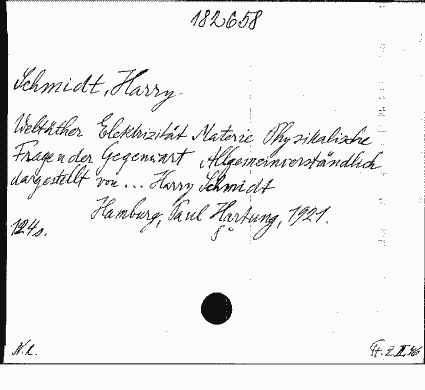 182658
Schmidt, Harry
Weltäther Elektrizität Materie Physikalische
Fragen der Gegenwart Allgemeinverständlich
dargestellt von ... Harry Schmidt
Hamburg, Paul Hartung, 1921.
124s. 8°
N.R.